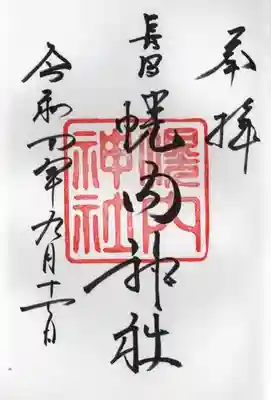 奉拝
長沼
幌内神社
幌内
神社
令和四年九月十一日